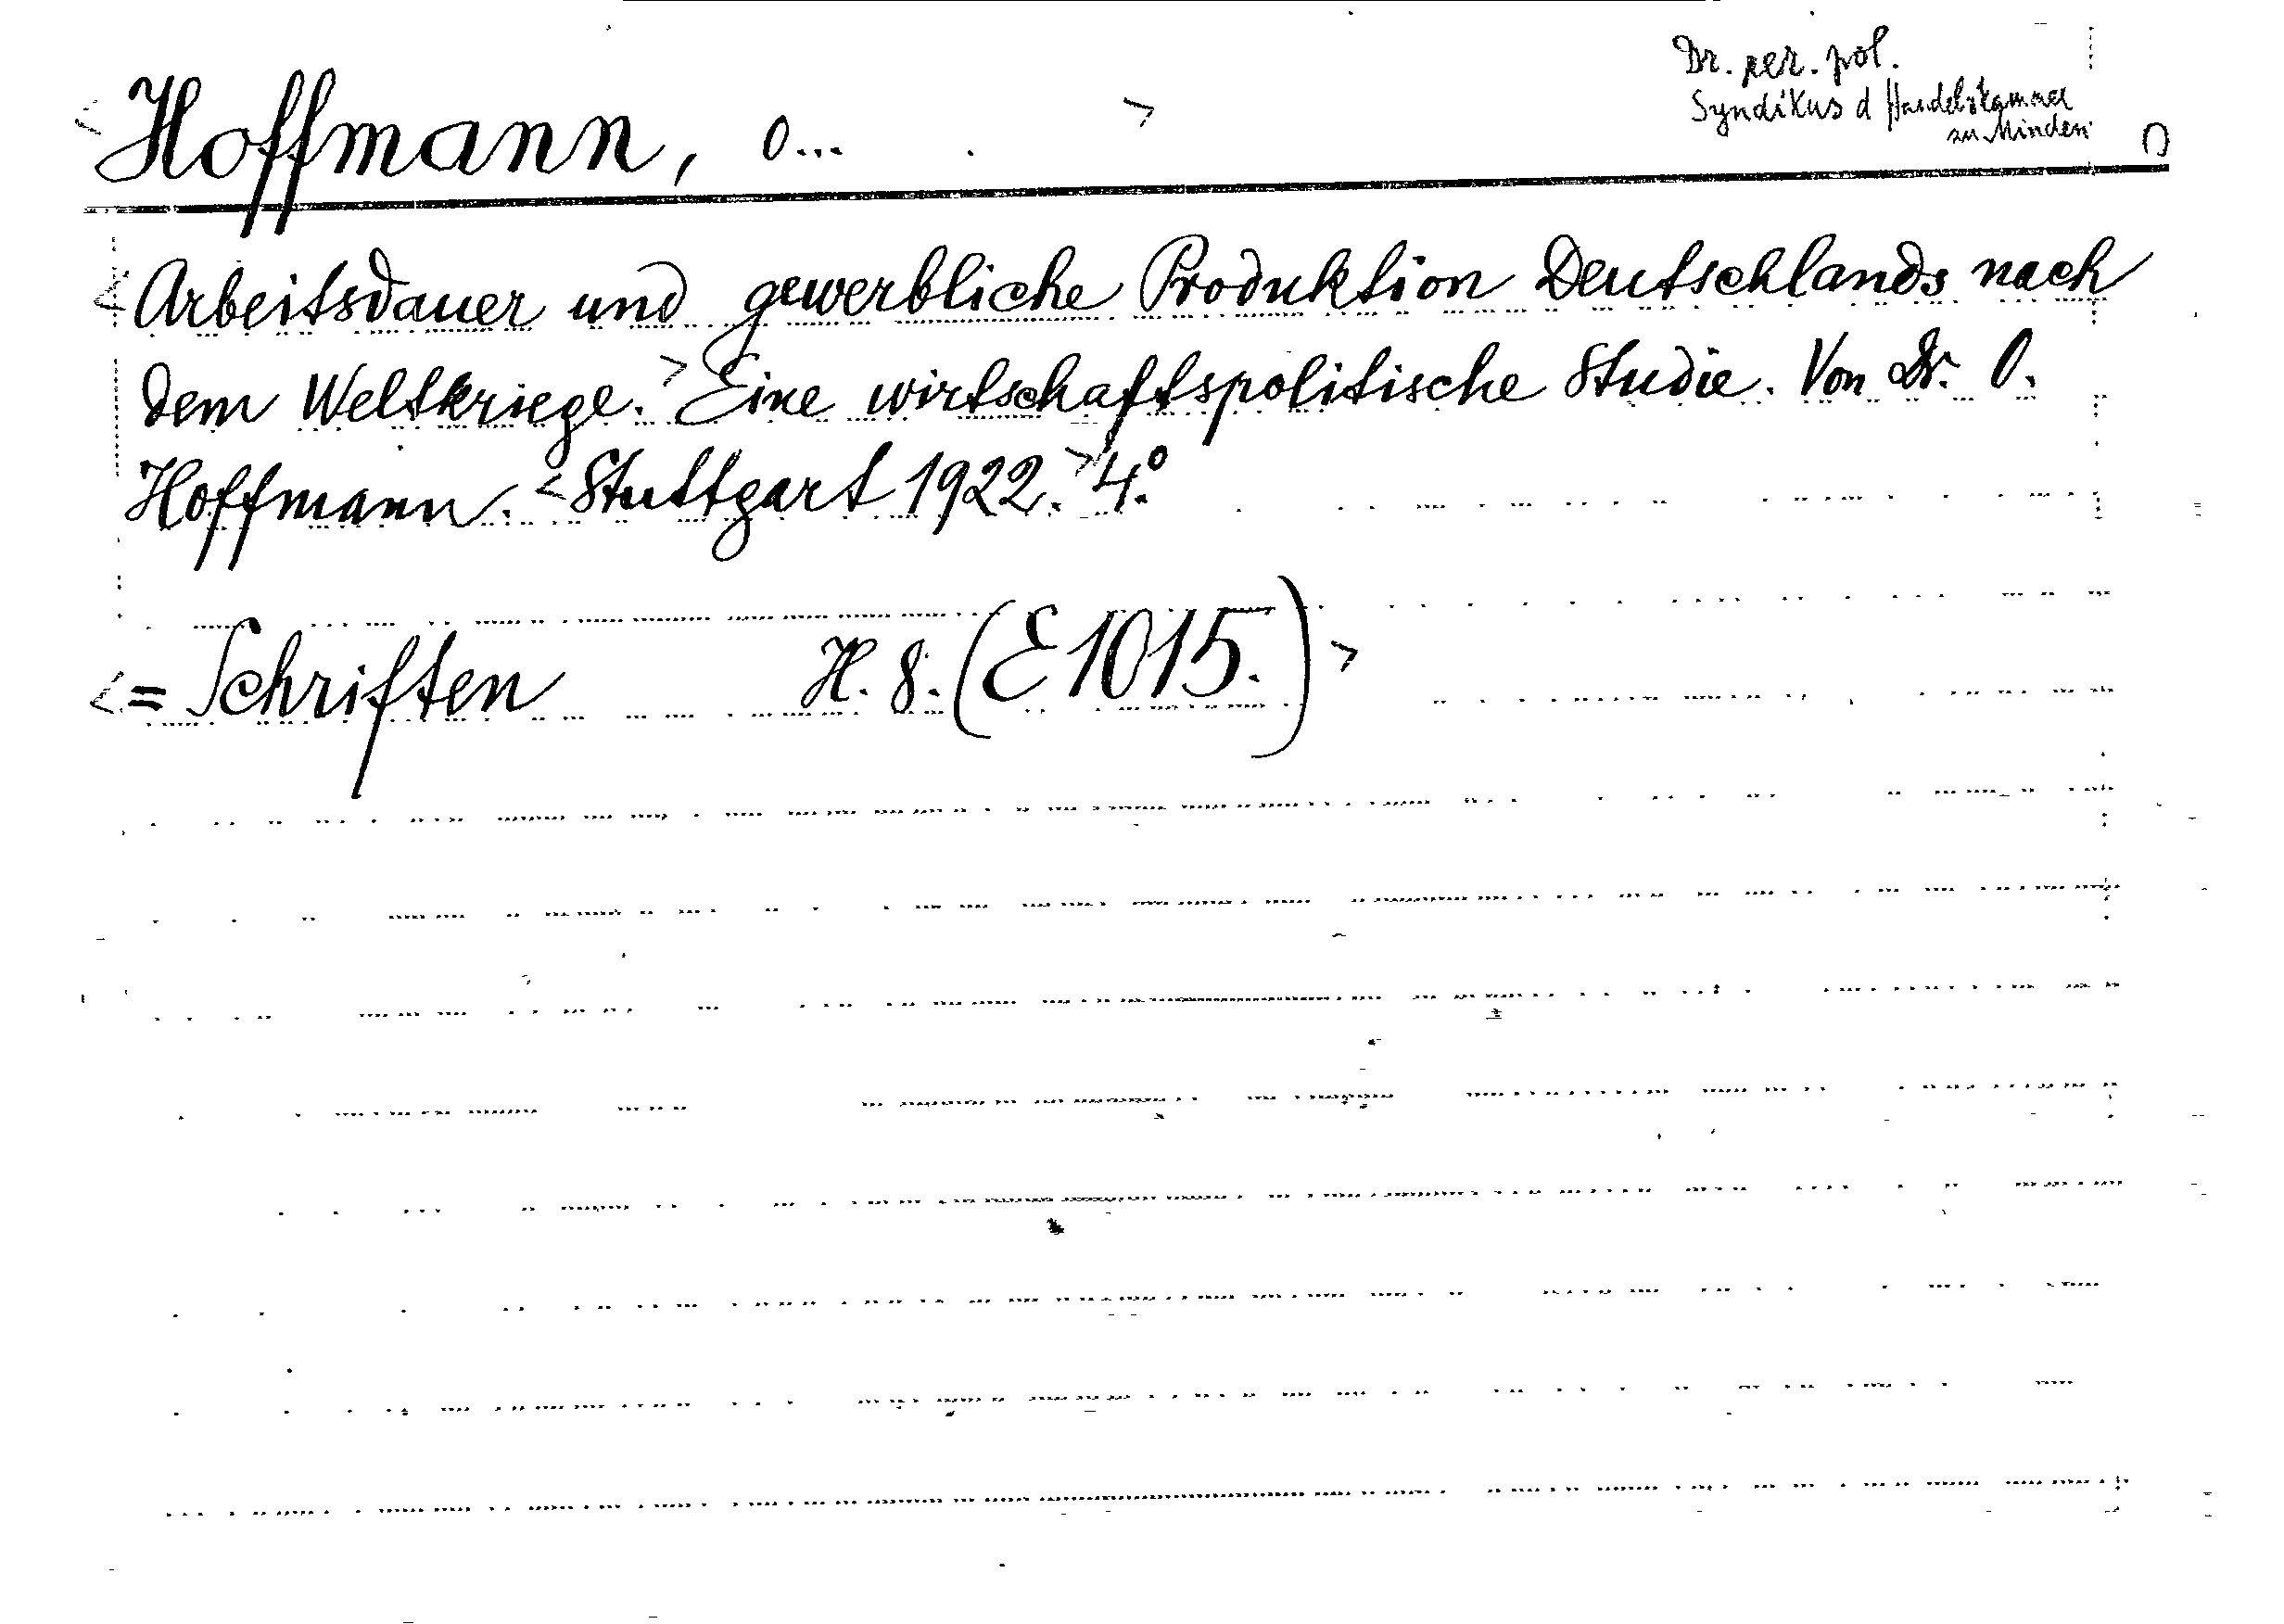 Dr. rer. pol.
Syndikus d Handelskammer
zu Minden
<Hoffmann, O... >
<Arbeitsdauer und gewerbliche Produktion Deutschlands nach
dem Weltkriege.> Eine wirtschaftspolitische Studie. Von Dr. O.
Hoffmann. <Stuttgart 1922.> 4.°
<= Schriften H. 8. (E 1015.)>